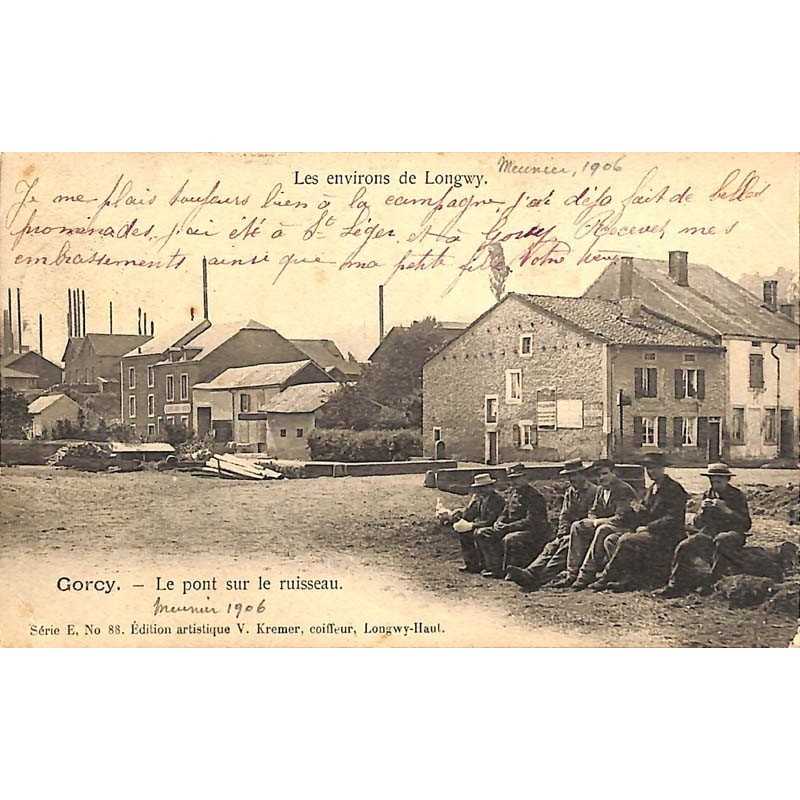 Meunier, 1906
Les environs de Longwy.
Je me plais toujours bien à la campagne, j'ai déjà fait de belles
prominades, j'ai été à St Léger et à Gorcy Recevez mes
embrassements ainsi que ma petite fille Votre
Gorcy. — Le pont sur le ruisseau.
Meunier 1906
Série E, No 88. Édition artistique V. Kremer, coiffeur, Longwy-Haut.